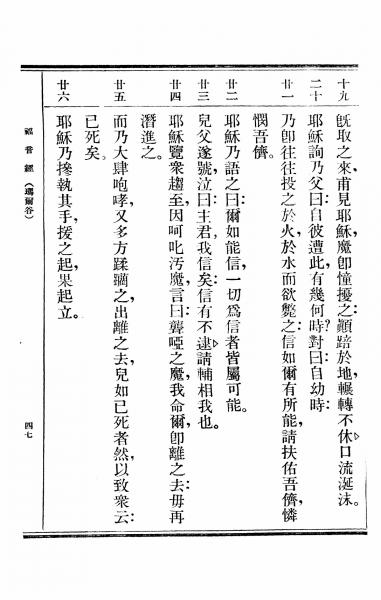 十九 旣取之來,甫見耶穌,魔卽憧擾之:顚踣於地,輾轉不休,口流涎沫。
二十 耶穌詢乃父曰:自彼遭此,有幾何時?對曰:自幼時:
廿一 乃卽往往投之於火,於水而欲斃之:信如爾有所能,請扶佑吾儕,憐
憫吾儕。
廿二 耶穌乃語之曰:爾如能信,一切爲信者皆屬可能。
廿三 兒父遂號泣曰:主君,我信矣:信有不逮,請輔相我也。
廿四 耶穌覽衆趨至,因呵叱汚魔,言曰:聾啞之魔,我命爾,卽離之去:毋再
潛進之。
廿五 而乃大肆咆哮,又多方蹂躪之,出離之去,兒如已死者然,以致衆云:
已死矣。
廿六 耶穌乃摻執其手,援之起,果起立。
福音經(瑪爾谷)
四七